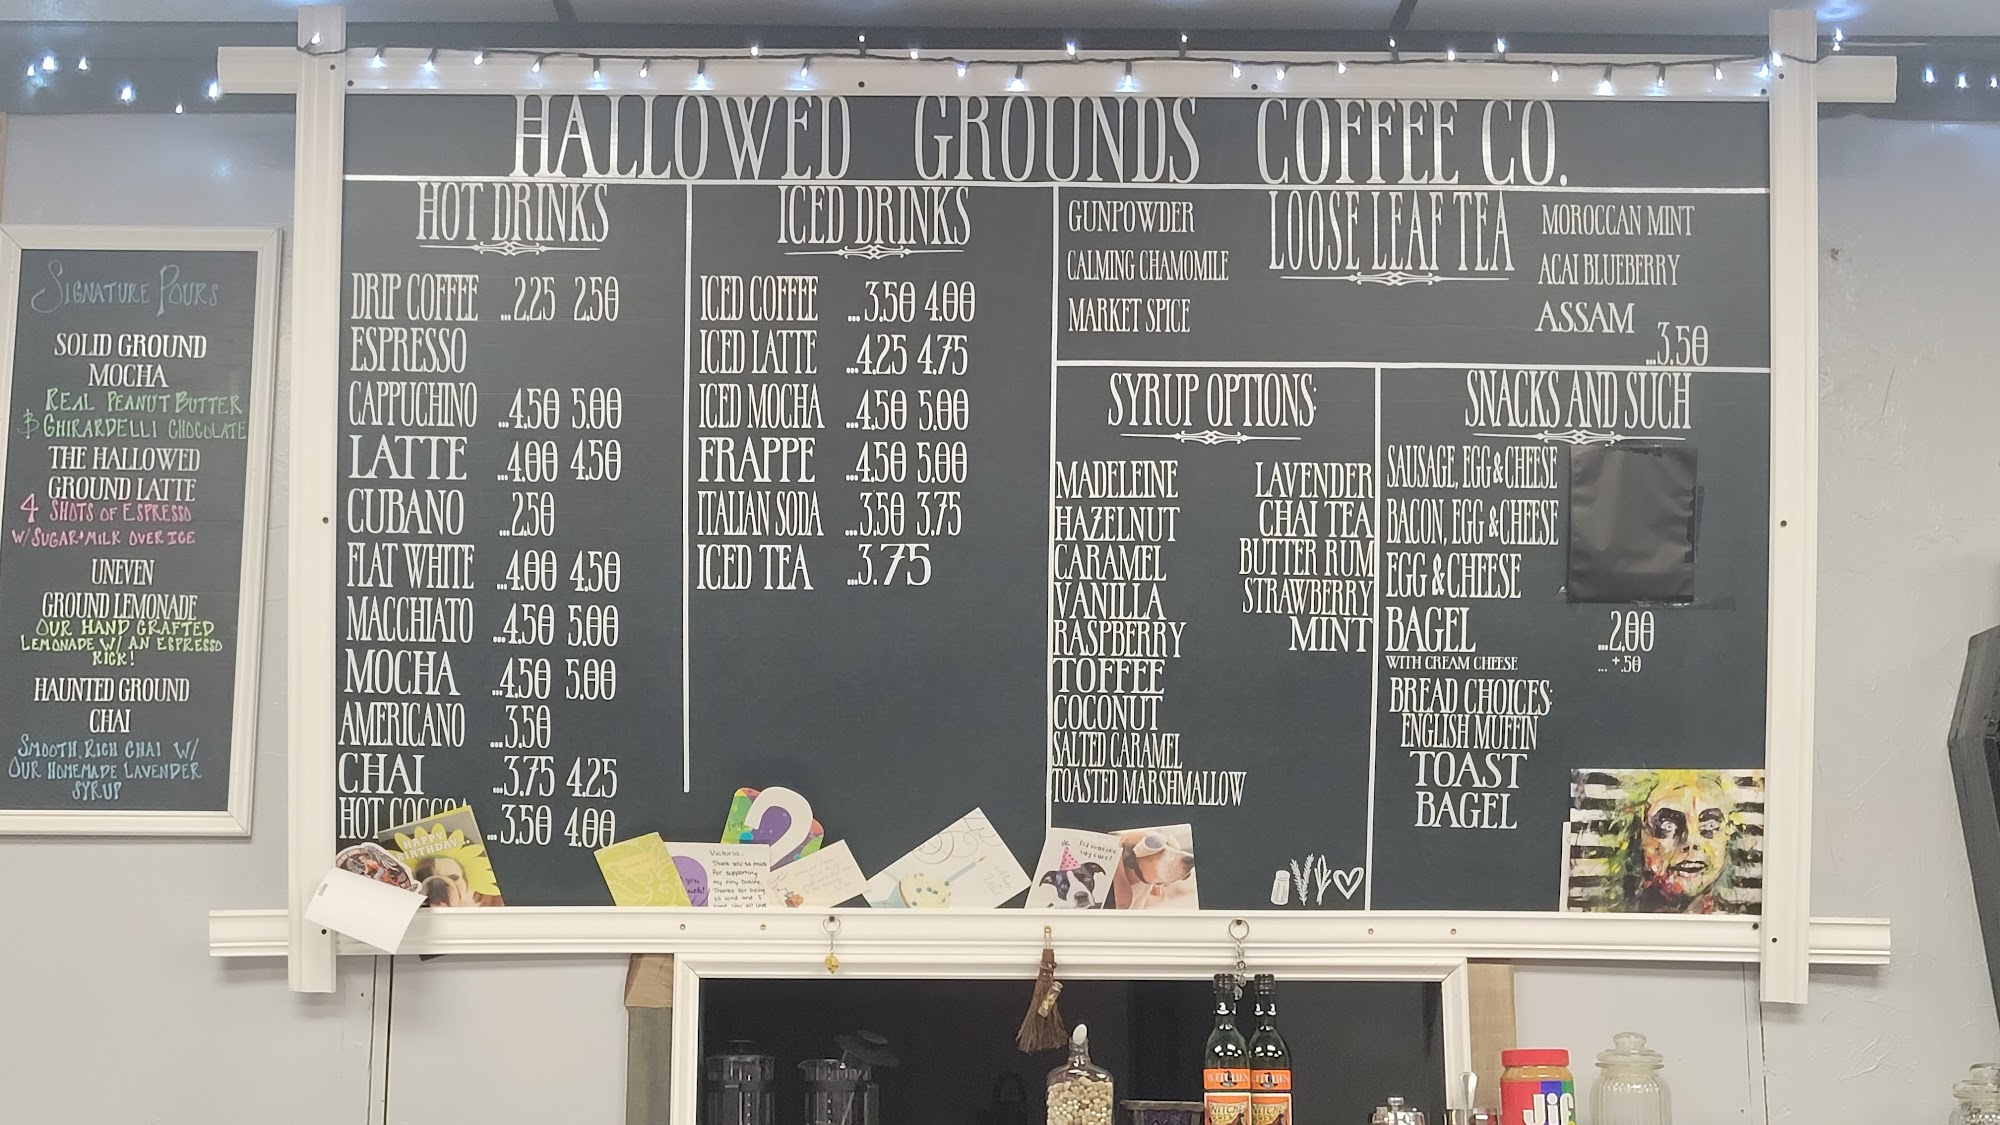 HALLOWED GROUNDS COFFEE CO.
SIGNATURE POURS
SOLID GROUND
MOCHA
REAL PEANUT BUTTER
& GHIRARDELLI CHOCOLATE
THE HALLOWED
GROUND LATTE
4 SHOTS OF ESPRESSO
W/ SUGAR & MILK OVER ICE
UNEVEN
GROUND LEMONADE
OUR HAND CRAFTED
LEMONADE W/ AN ESPRESSO
KICK!
HAUNTED GROUND
CHAI
SMOOTH, RICH CHAI W/
OUR HOMEMADE LAVENDER
SYRUP
HOT DRINKS
DRIP COFFEE ...2.25 2.50
ESPRESSO
CAPPUCHINO ...4.50 5.00
LATTE ...4.00 4.50
CUBANO ...2.50
FLAT WHITE ...4.00 4.50
MACCHIATO ...4.50 5.00
MOCHA ...4.50 5.00
AMERICANO ...3.50
CHAI ...3.75 4.25
HOT COCOA ...3.50 4.00
ICED DRINKS
ICED COFFEE ...3.50 4.00
ICED LATTE ...4.25 4.75
ICED MOCHA ...4.50 5.00
FRAPPE ...4.50 5.00
ITALIAN SODA ...3.50 3.75
ICED TEA ...3.75
LOOSE LEAF TEA
GUNPOWDER
CALMING CHAMOMILE
MARKET SPICE
MOROCCAN MINT
ACAI BLUEBERRY
ASSAM
...3.50
SYRUP OPTIONS:
MADELEINE
HAZELNUT
CARAMEL
VANILLA
RASPBERRY
TOFFEE
COCONUT
SALTED CARAMEL
TOASTED MARSHMALLOW
LAVENDER
CHAI TEA
BUTTER RUM
STRAWBERRY
MINT
SNACKS AND SUCH
SAUSAGE, EGG & CHEESE
BACON, EGG & CHEESE
EGG & CHEESE
BAGEL ...2.00
WITH CREAM CHEESE ... +.50
BREAD CHOICES:
ENGLISH MUFFIN
TOAST
BAGEL
HAPPY
BIRTHDAY
2
Victoria,
Thank you so much
for supporting
my tiny
Thanks for being
so kind and I
Jif